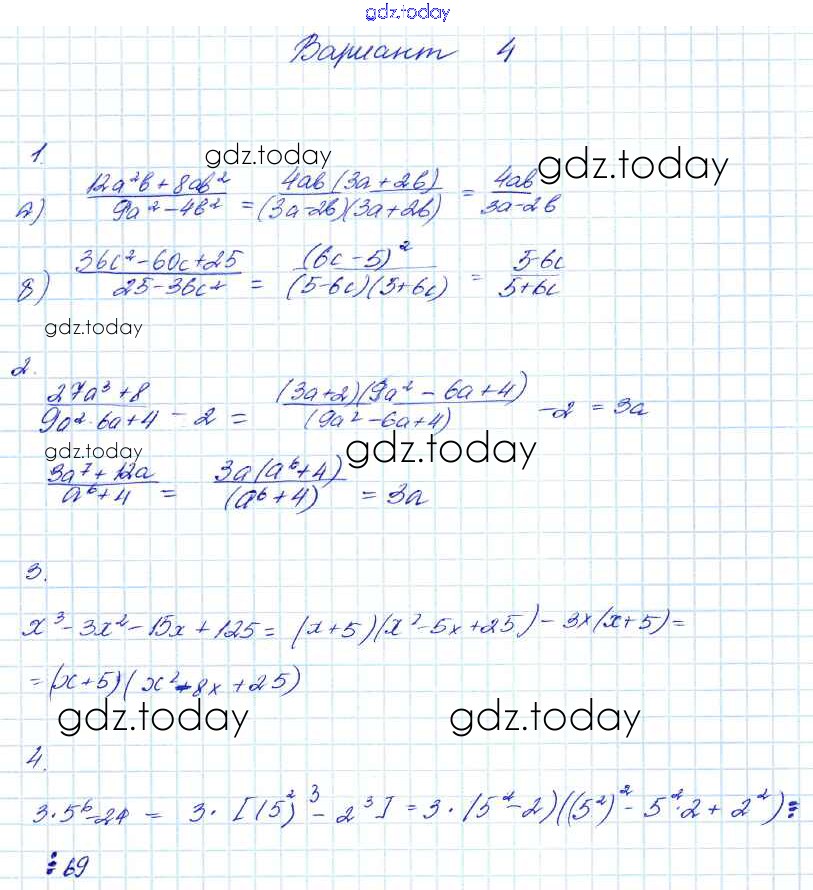 gdz.today
Вариант 4
1. gdz.today gdz.today
а) (12a²b + 8ab²)/(9a² - 4b²) = (4ab(3a + 2b))/((3a-2b)(3a+2b)) = 4ab/(3a-2b)
б) (36c² - 60c + 25)/(25 - 36c²) = (6c - 5)²/((5-6c)(5+6c)) = (5-6c)/(5+6c)
gdz.today
2.
(27a³ + 8)/(9a² - 6a + 4) - 2 = ((3a+2)(9a² - 6a + 4))/(9a² - 6a + 4) - 2 = 3a
gdz.today gdz.today
(3a⁷ + 12a)/(a⁶ + 4) = (3a(a⁶ + 4))/(a⁶ + 4) = 3a
3.
x³ - 3x² - 15x + 125 = (x+5)(x² - 5x + 25) - 3x(x+5) =
= (x+5)(x² - 8x + 25)
gdz.today gdz.today
4.
3·5⁶ - 24 = 3·[(5²)³ - 2³] = 3·(5² - 2)((5²)² - 5²·2 + 2²) ⋮
⋮ 69